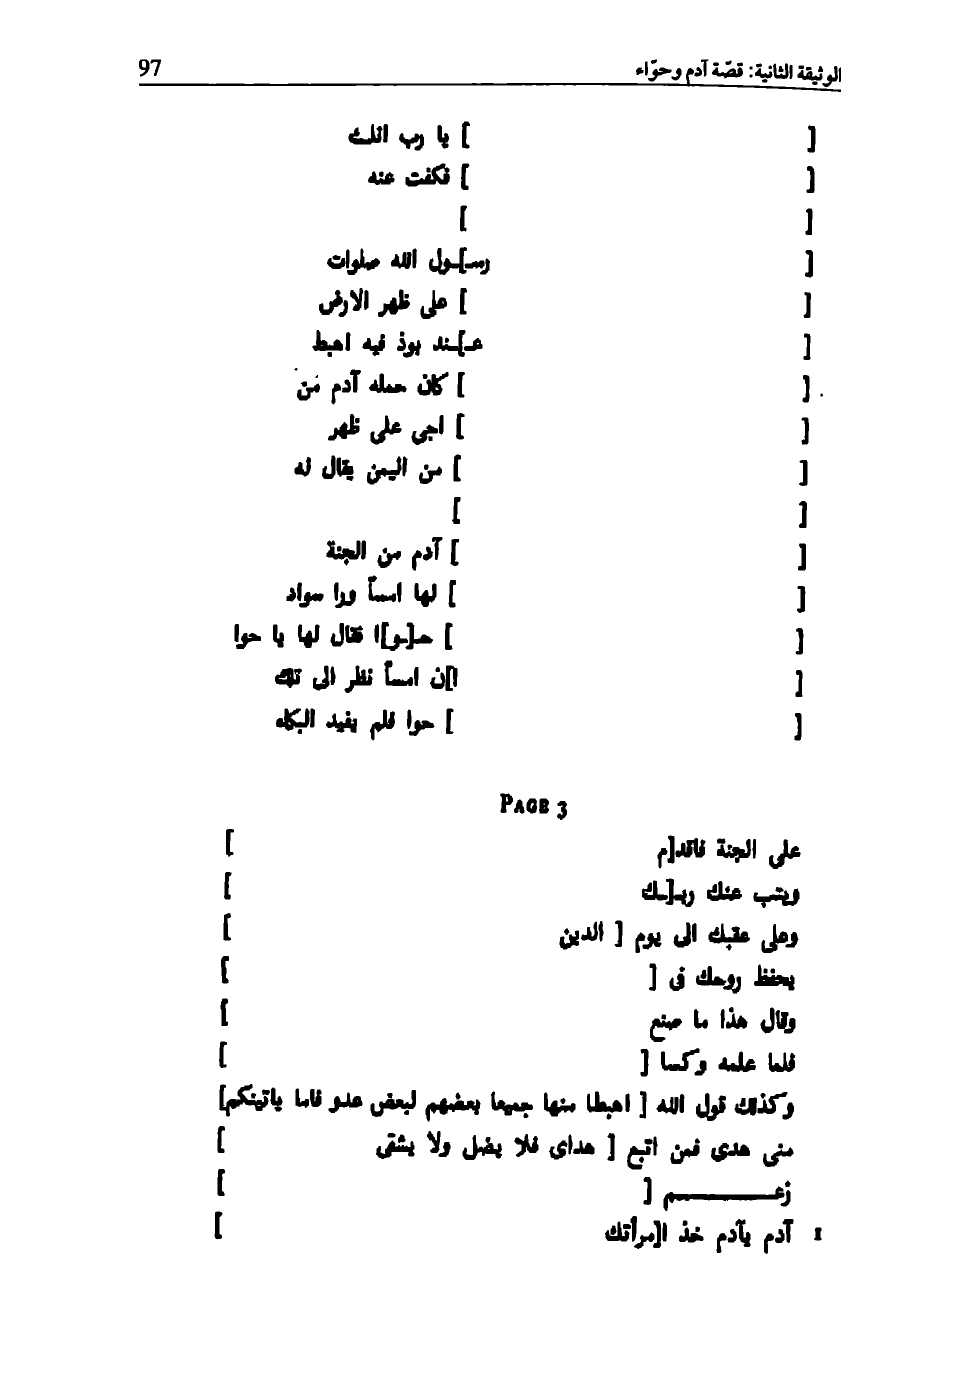 الوثيقة الثانية: قصّة آدم وحوّاء 97
[ ] يا رب انلك
[ ] فكفت عنه
[ ]
[ رسـ]ـول الله صلوات
[ ] على ظهر الارض
[ عـ]ـند بوذ فيه اهبط
[ ] كان حمله آدم من
[ ] اجى على ظهر
[ ] من اليمن يقال له
[ ]
[ ] آدم من الجنة
[ ] لها امساً ورا سواد
[ ] حـ[ـو]ا فقال لها يا حوا
[ ا]ن امساً نظر الى تلك
[ ] حوا فلم يفيد البكاء
PAGE 3
على الجنة فاقد[م ]
ويتب عنك ربـ[ـك ]
وعلى عقبك الى يوم [ الدين ]
يحفظ روحك فى [ ]
وقال هذا ما صنع [ ]
فلما علمه وكسا [ ]
وكذلك قول الله [ اهبطا منها جميعا بعضهم لبعض عدو فاما ياتينكم]
منى هدى فمن اتبع [ هداى فلا يضل ولا يشقى ]
زعـــــــم [ ]
1 آدم يآدم خذ ا[مرأتك ]